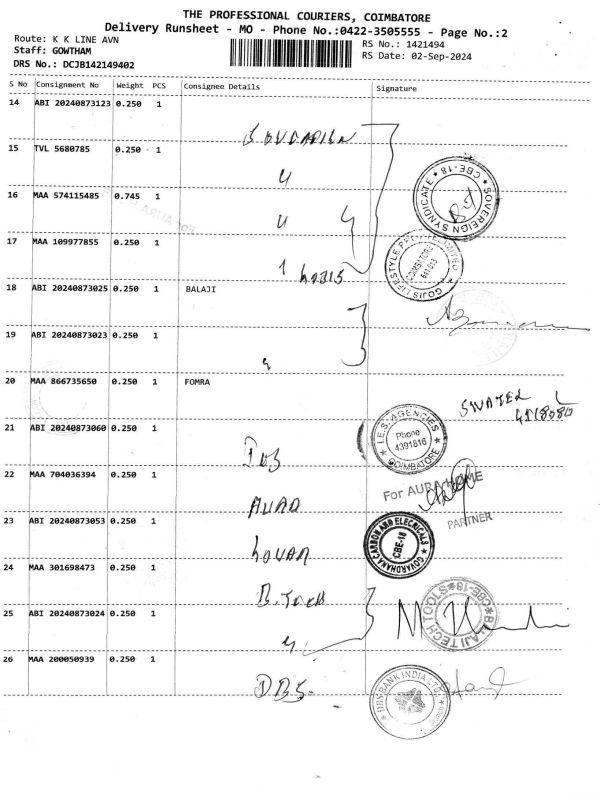 THE PROFESSIONAL COURIERS, COIMBATORE
Delivery Runsheet - MO - Phone No.:0422-3505555 - Page No.:2
Route: K K LINE AVN
RS No.: 1421494
Staff: GOWTHAM
RS Date: 02-Sep-2024
DRS No.: DCJB142149402
S No Consignment No Weight PCS Consignee Details Signature
14 ABI 20240873123 0.250 1
15 TVL 5680785 0.250 1
SOVEREIGN SYNDICATE * CBE-18 *
16 MAA 574115485 0.745 1
17 MAA 109977855 0.250 1
GOJIS LIFESTYLE PRIVATE LIMITED
COIMBATORE
641 018
18 ABI 20240873025 0.250 1 BALAJI
19 ABI 20240873023 0.250 1
20 MAA 866735650 0.250 1 FOMRA
21 ABI 20240873060 0.250 1
I.E.S. AGENCIES
Phone
4391816
* COIMBATORE *
22 MAA 704036394 0.250 1
For AURA HOME
PARTNER
23 ABI 20240873053 0.250 1
GOVARDHANA CARBON AND ELECRICALS
CBE-18
24 MAA 301698473 0.250 1
B. Tech
BALAJI TECH TOOLS * CBE-18 *
25 ABI 20240873024 0.250 1
26 MAA 200050939 0.250 1
DBS
DBS BANK INDIA LTD.